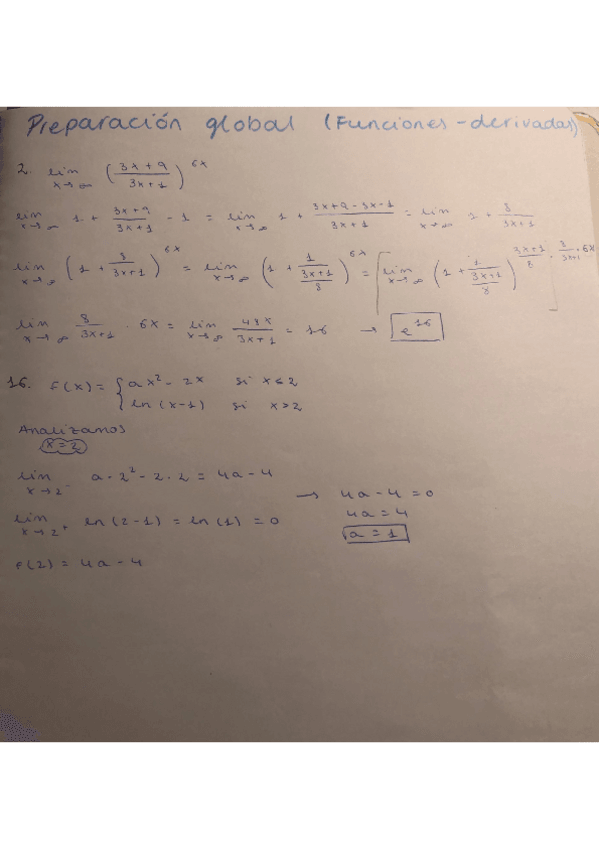 Preparación global (Funciones - derivadas)
2. lim x→∞ ((3x+9)/(3x+1))^6x
lim x→∞ 1 + (3x+9)/(3x+1) - 1 = lim x→∞ 1 + (3x+9-3x-1)/(3x+1) = lim x→∞ 1 + 8/(3x+1)
lim x→∞ (1 + 8/(3x+1))^6x = lim x→∞ (1 + 1/((3x+1)/8))^6x = [lim x→∞ (1 + 1/((3x+1)/8))^((3x+1)/8 · 8/(3x+1) · 6x)]
lim x→∞ 8/(3x+1) · 6x = lim x→∞ 48x/(3x+1) = 16 → e^16
16. F(x) = { ax² - 2x si x≤2
ln (x-1) si x>2
Analizamos
x=2
lim x→2⁻ a·2² - 2·2 = 4a - 4
→ 4a - 4 = 0
lim x→2⁺ ln(2-1) = ln(1) = 0
4a = 4
a = 1
F(2) = 4a - 4